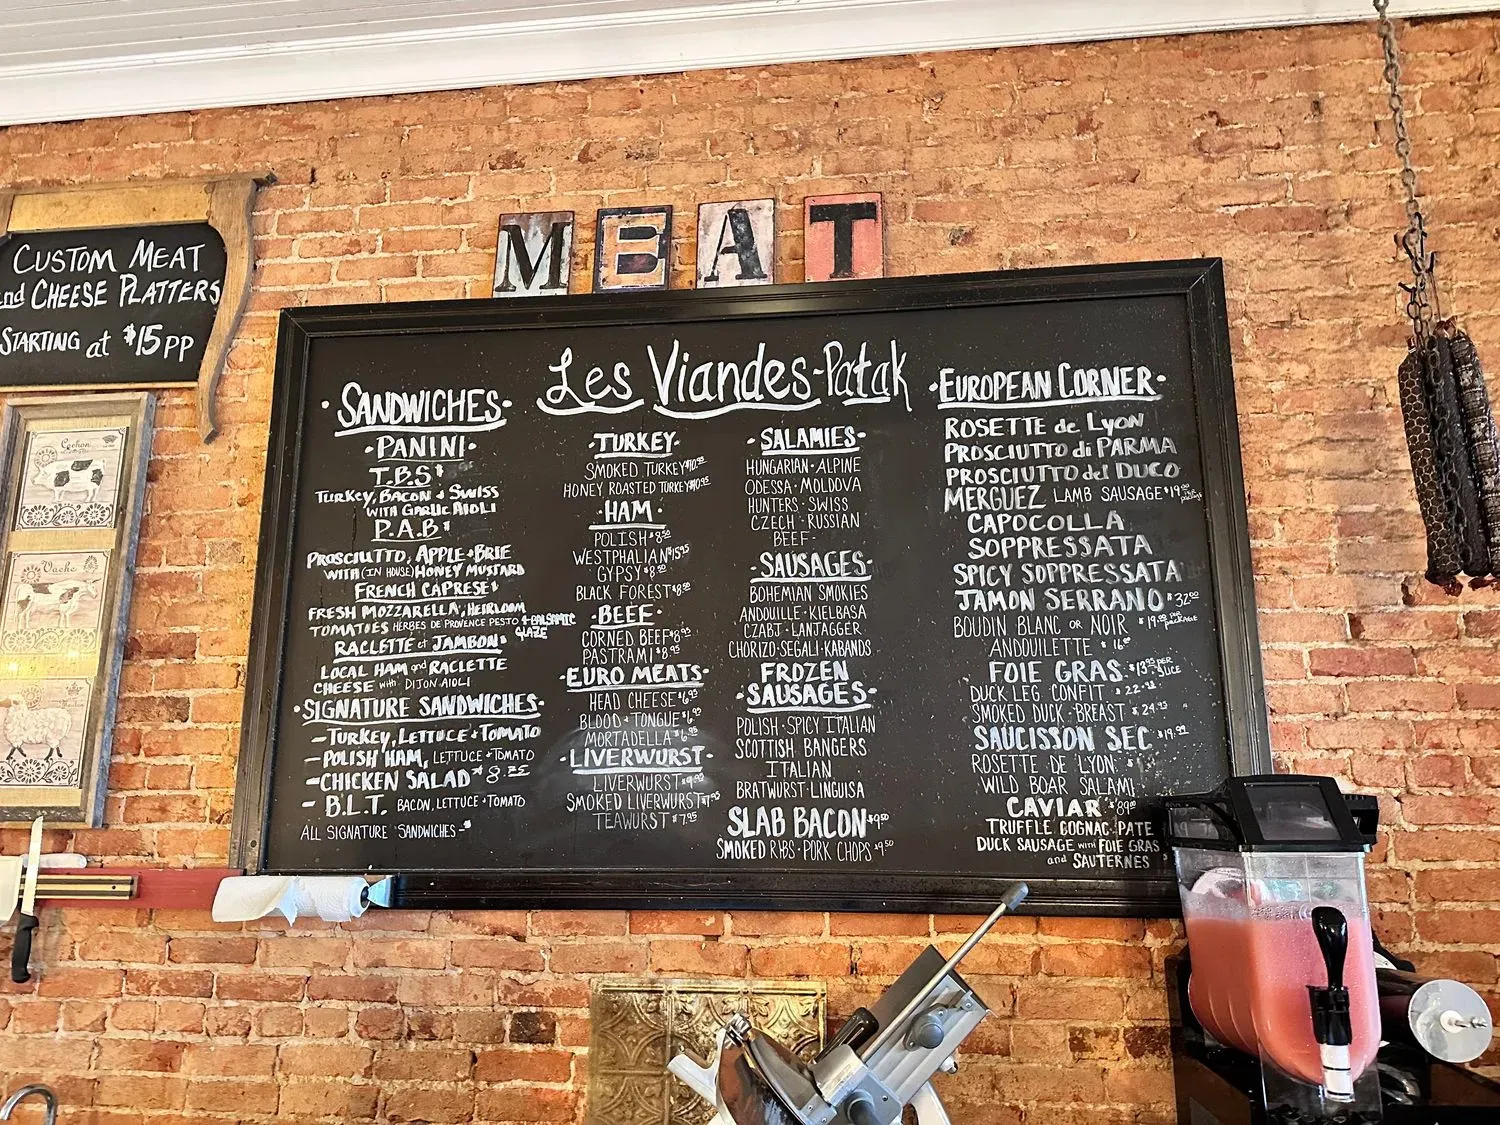 CUSTOM MEAT
and CHEESE PLATTERS
STARTING at $15 PP
Cochon
Vache
MEAT
Les Viandes-Patak
·SANDWICHES·
·PANINI·
T.B.S $
TURKEY, BACON + SWISS
WITH GARLIC AIOLI
P.A.B $
PROSCIUTTO, APPLE + BRIE
WITH (IN HOUSE) HONEY MUSTARD
FRENCH CAPRESE $
FRESH MOZZARELLA, HEIRLOOM
TOMATOES HERBES DE PROVENCE PESTO + BALSAMIC
GLAZE
RACLETTE et JAMBON $
LOCAL HAM and RACLETTE
CHEESE with DIJON AIOLI
·SIGNATURE SANDWICHES·
- TURKEY, LETTUCE + TOMATO
- POLISH HAM, LETTUCE + TOMATO
- CHICKEN SALAD
- B.L.T. BACON, LETTUCE + TOMATO
ALL SIGNATURE SANDWICHES - $
·TURKEY·
SMOKED TURKEY $10.95
HONEY ROASTED TURKEY $10.95
·HAM·
POLISH $8.50
WESTPHALIAN $15.95
GYPSY $8.50
BLACK FOREST $8.50
·BEEF·
CORNED BEEF $8.95
PASTRAMI $8.95
·EURO MEATS·
HEAD CHEESE $6.95
BLOOD + TONGUE $6.95
MORTADELLA $6.95
·LIVERWURST·
LIVERWURST
SMOKED LIVERWURST $7.95
TEAWURST $7.95
·SALAMIES·
HUNGARIAN · ALPINE
ODESSA · MOLDOVA
HUNTERS · SWISS
CZECH · RUSSIAN
BEEF -
·SAUSAGES·
BOHEMIAN SMOKIES
ANDOUILLE · KIELBASA
CZABJ · LANJAGGER
CHORIZO · SEGALI · KABANOS
FROZEN
·SAUSAGES·
POLISH · SPICY ITALIAN
SCOTTISH BANGERS
ITALIAN
BRATWURST · LINGUISA
SLAB BACON $9.50
SMOKED RIBS · PORK CHOPS $9.50
·EUROPEAN CORNER·
ROSETTE de LYON
PROSCIUTTO di PARMA
PROSCIUTTO del DUCO
MERGUEZ LAMB SAUSAGE $19.00
CAPOCOLLA
SOPPRESSATA
SPICY SOPPRESSATA
JAMON SERRANO $32.00
BOUDIN BLANC OR NOIR $19.00 per package
ANDOUILETTE $16
FOIE GRAS $13.95 PER SLICE
DUCK LEG CONFIT $22
SMOKED DUCK BREAST $24.95
SAUCISSON SEC $19.99
ROSETTE DE LYON
WILD BOAR SALAMI
CAVIAR $89
TRUFFLE COGNAC PATE
DUCK SAUSAGE with FOIE GRAS
and SAUTERNES